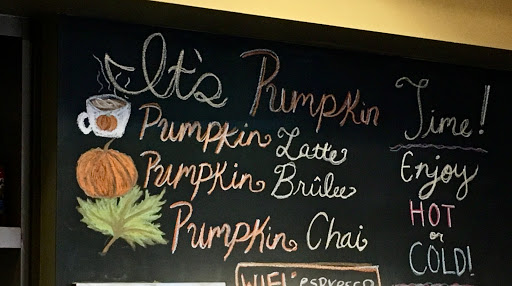 It's Pumpkin Time!
Pumpkin Latte
Pumpkin Brûlee
Pumpkin Chai
Enjoy
HOT
or
COLD!
espresso